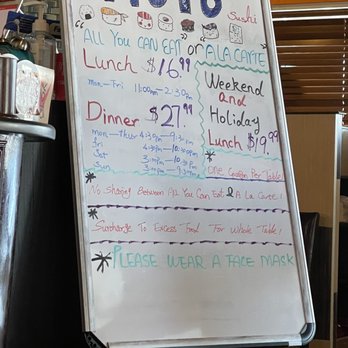 TOTO
Sushi
"ALL YOU CAN EAT" or "A LA CARTE"
Lunch $16.99
mon-Fri 11:00am-2:30pm
Weekend
and
Holiday
Lunch $19.99
Dinner $27.99
mon-thur 4:30pm-9:30pm
Fri 4:30pm-10:30pm
Sat 3:00pm-10:30pm
Sun 3:00pm-9:30pm
* ONE Coupon Per Table!
* No Sharing Between All You Can Eat & A La Carte!
* Surcharge To Excess Food For Whole Table!
* PLEASE WEAR A FACE MASK